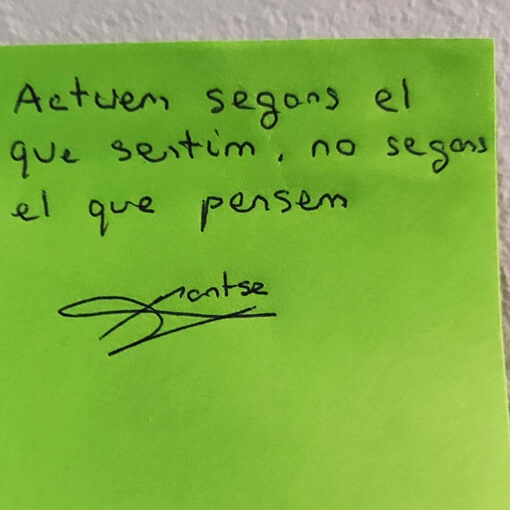 Actuem segons el
que sentim, no segons
el que pensem